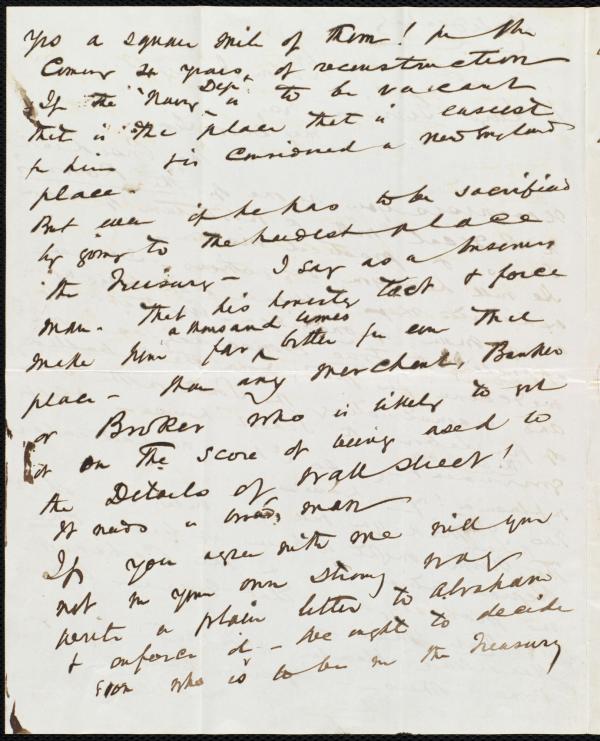 yrs a square mile of them! for the
Coming 20 years, of reconstruction
If the Navy Dept is to be vacant
that is the place that is easiest
for him & is considered a New England
place.
But even if he has to be sacrificed
by going to the hardest place
the Treasury - I say as a business
man - that his honesty tact & force
make him far a thousand times better for even that
place - than any merchant, Banker
or Broker who is likely to get
it on the score of being used to
the Details of Wall Street!
It needs a broad man
If you agree with me will you
not in your own strong way
write a plain letter to Abraham
& enforce it - He ought to decide
soon who is to be in the Treasury